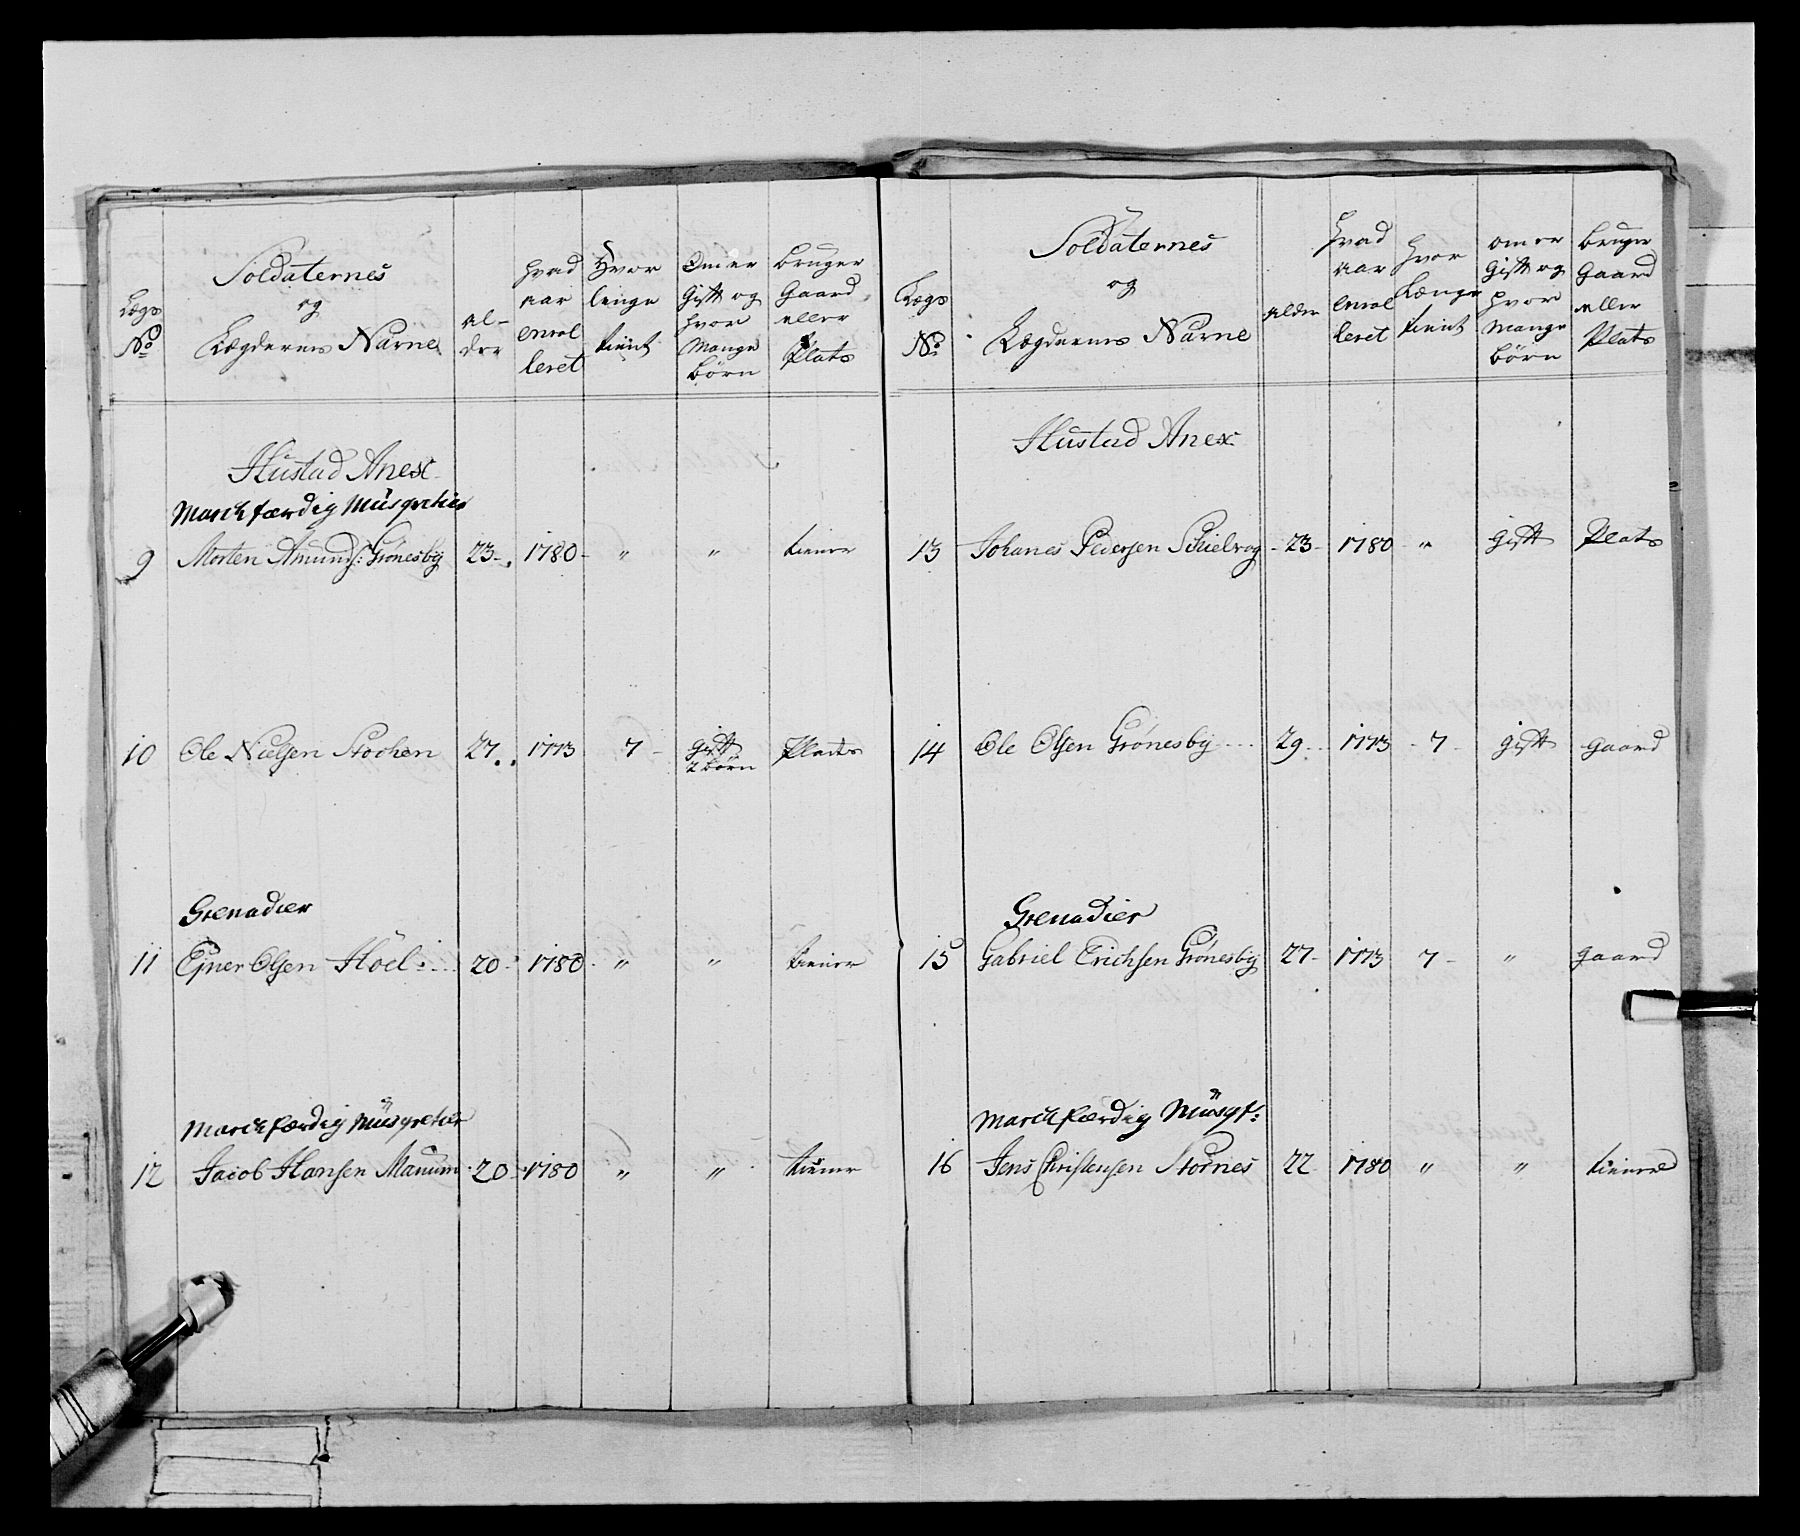 Lægs No
Soldaternes og Lægdernes Nafne
al-der
hvad aar enrolleret
Hvor lenge tient
Om er Gift og hvor Mange Børn
Bruger Gaard eller Plats
Hustad Anex
March færdig Musqvetier
9 Morten Amunds: Grönesbÿ 23. 1780 " " tiener
10 Ole Nielsen Stochen 27. 1773 7 gift 2 børn Plads
Grenadier
11 Ejner Olsen Höel 20 1780 " " tiener
March færdig Musqvetier
12 Jacob Hansen Manum 20 1780 " " tiener
Lægs No
Soldaternes og Lægdernes Nafne
alder
hvad aar enrolleret
hvor Længe tient
om er Gift og hvor Mange Børn
bruger Gaard eller Plats
Hustad Anex
13 Johanes Pedersen Schielvog 23 1780 " gift Plats
14 Ole Olsen Grönesbÿ 29 1773 7 gift gaard
Grenadier
15 Gabriel Erichsen Grönesbÿ 27 1773 7 " gaard
March færdig Musqt:
16 Jens Christensen Stornes 22 1780 " " tiener